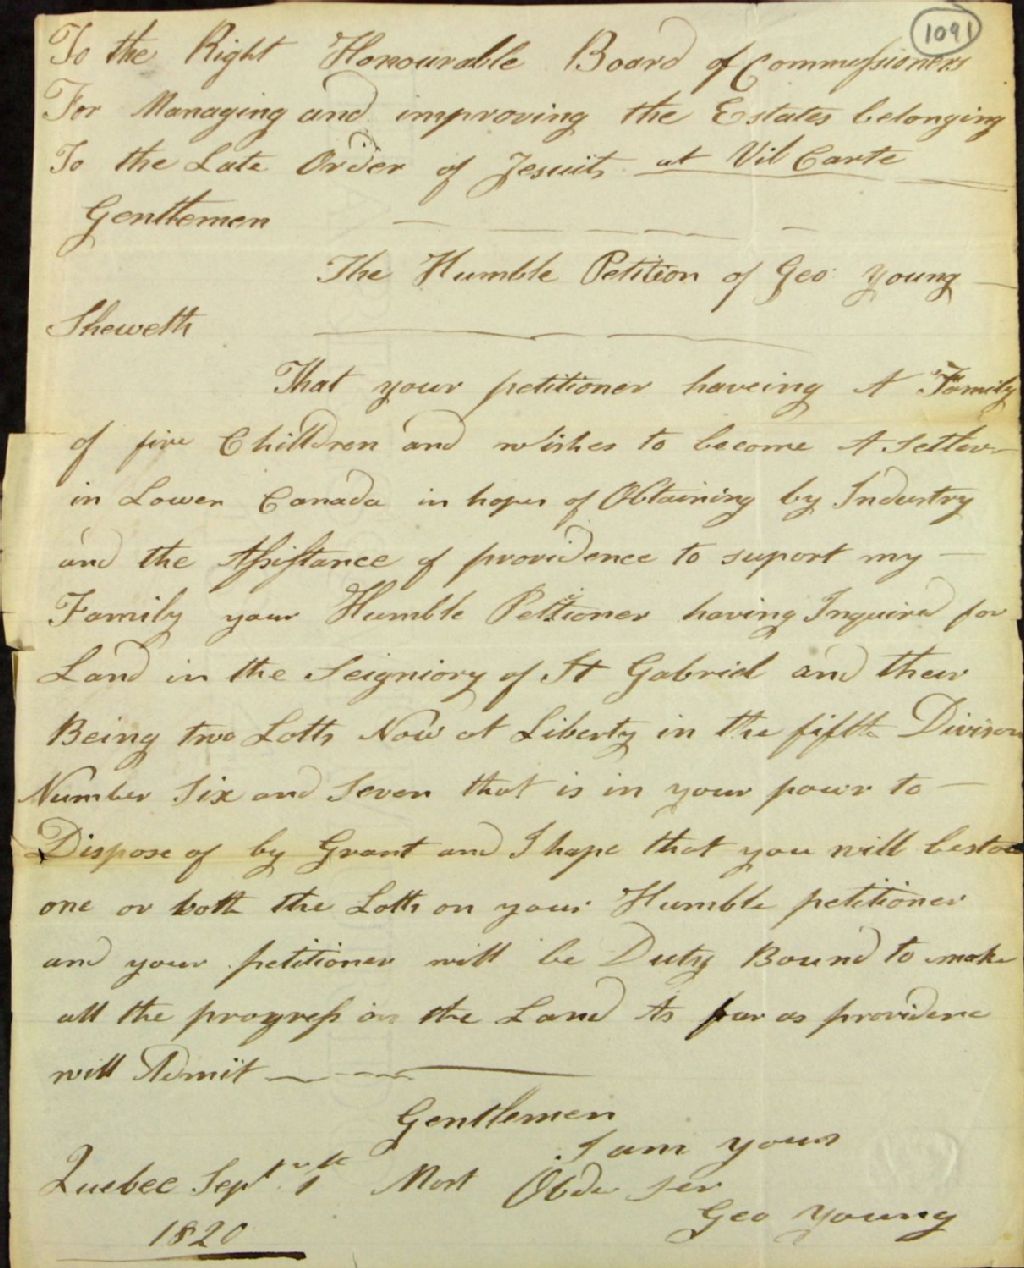 1091
To the Right Honourable Board of Commissioners
For Managing and improving the Estates belonging
To the Late Order of Jesuits at Vil Carte
Gentlemen
The Humble Petition of Geo Young
Sheweth
That your petitioner haveing A Family
of five Chilldren and wishes to become A Settler
in Lower Canada in hopes of Obtaining by Industry
and the Assistance of providence to suport my
Family your Humble Petitioner having Inquired for
Land in the Seigniory of St Gabriel and their
Being two Lotts Now at Liberty in the fifth Divison
Number Six and Seven that is in your powr to
Dispose of by Grant and I hope that you will bestoe
one or both the Lotts on your Humble petitioner
and your petitioner will be Duty Bound to make
all the progress on the Land As far as providence
will Admit
Gentlemen
I am yours
Quebec Sept 1 Most Obde ser
Geo Young
1820